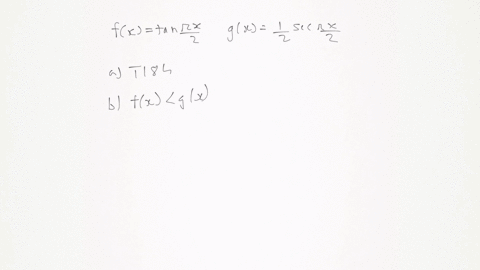 f(x) = tan πx/2 g(x) = 1/2 sec πx/2
a) TI84
b) f(x) < g(x)